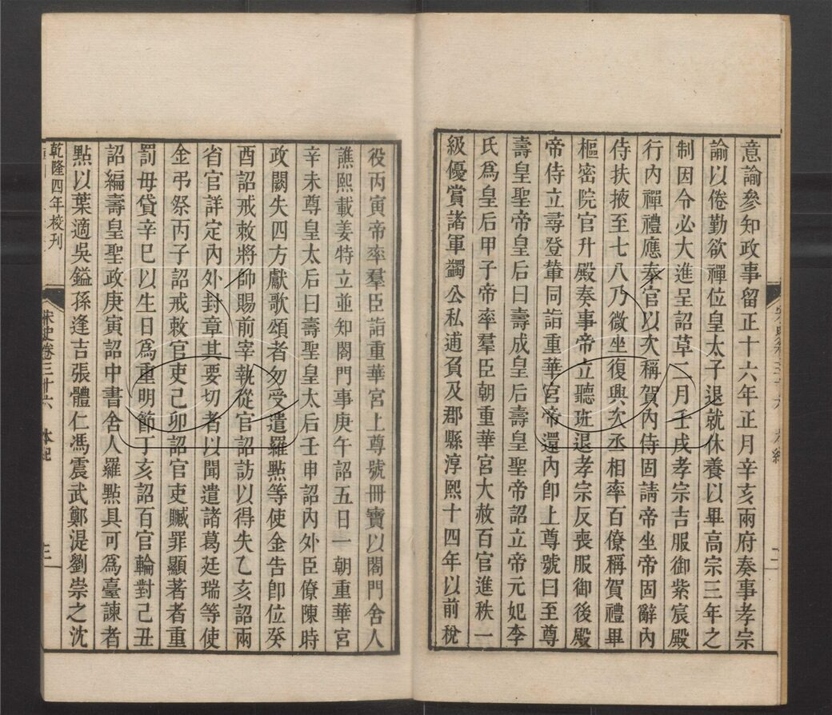 意諭參知政事留正十六年正月辛亥兩府奏事孝宗
諭以倦勤欲禪位皇太子退就休養以畢高宗三年之
制因令必大進呈詔草二月壬戌孝宗吉服御紫宸殿
行內禪禮應奉官以次稱賀內侍固請帝坐帝固辭內
侍扶掖至七八乃微坐復興次丞相率百僚稱賀禮畢
樞密院官升殿奏事帝立聽班退孝宗反喪服御後殿
帝侍立尋登輦同詣重華宮帝還內卽上尊號曰至尊
壽皇聖帝皇后曰壽成皇后壽皇聖帝詔立帝元妃李
氏爲皇后甲子帝率羣臣朝重華宮大赦百官進秩一
級優賞諸軍蠲公私逋負及郡縣淳熙十四年以前稅
役丙寅帝率羣臣詣重華宮上尊號冊寶以閤門舍人
譙熙載姜特立並知閤門事庚午詔五日一朝重華宮
辛未尊皇太后曰壽聖皇太后壬申詔內外臣僚陳時
政闕失四方獻歌頌者勿受遣羅點等使金告卽位癸
酉詔戒敕將帥賜前宰執從官詔訪以得失乙亥詔兩
省官詳定內外封章其要切者以聞遣諸葛廷瑞等使
金弔祭丙子詔戒敕官吏己卯詔官吏贓罪顯著者重
罰毋貸辛巳以生日爲重明節丁亥詔百官輪對己丑
詔編壽皇聖政庚寅詔中書舍人羅點具可爲臺諫者
點以葉適吳鎰孫逢吉張體仁馮震武鄭湜劉崇之沈
乾隆四年校刊
宋史卷三十六 本紀
三